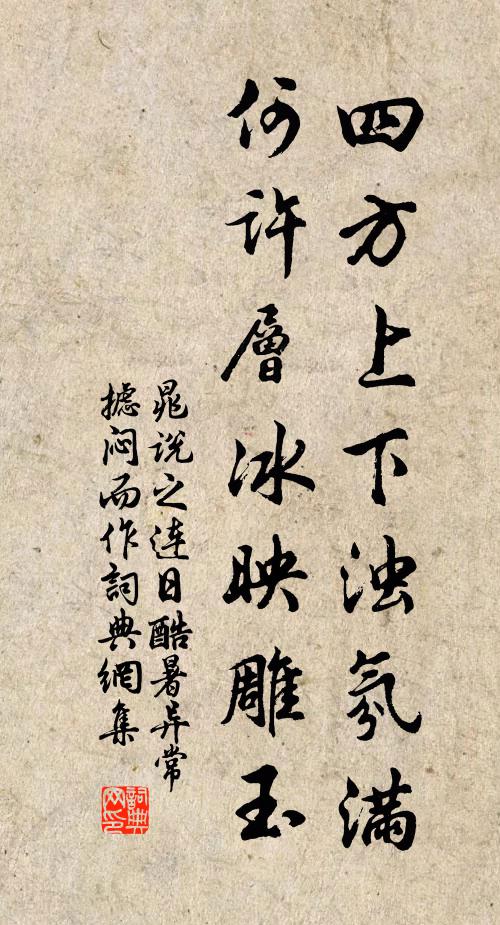 四方上下浊氛满
何许層冰映雕玉
晁说之连日酷暑异常
摅闷而作詞典網集
詞典
网印